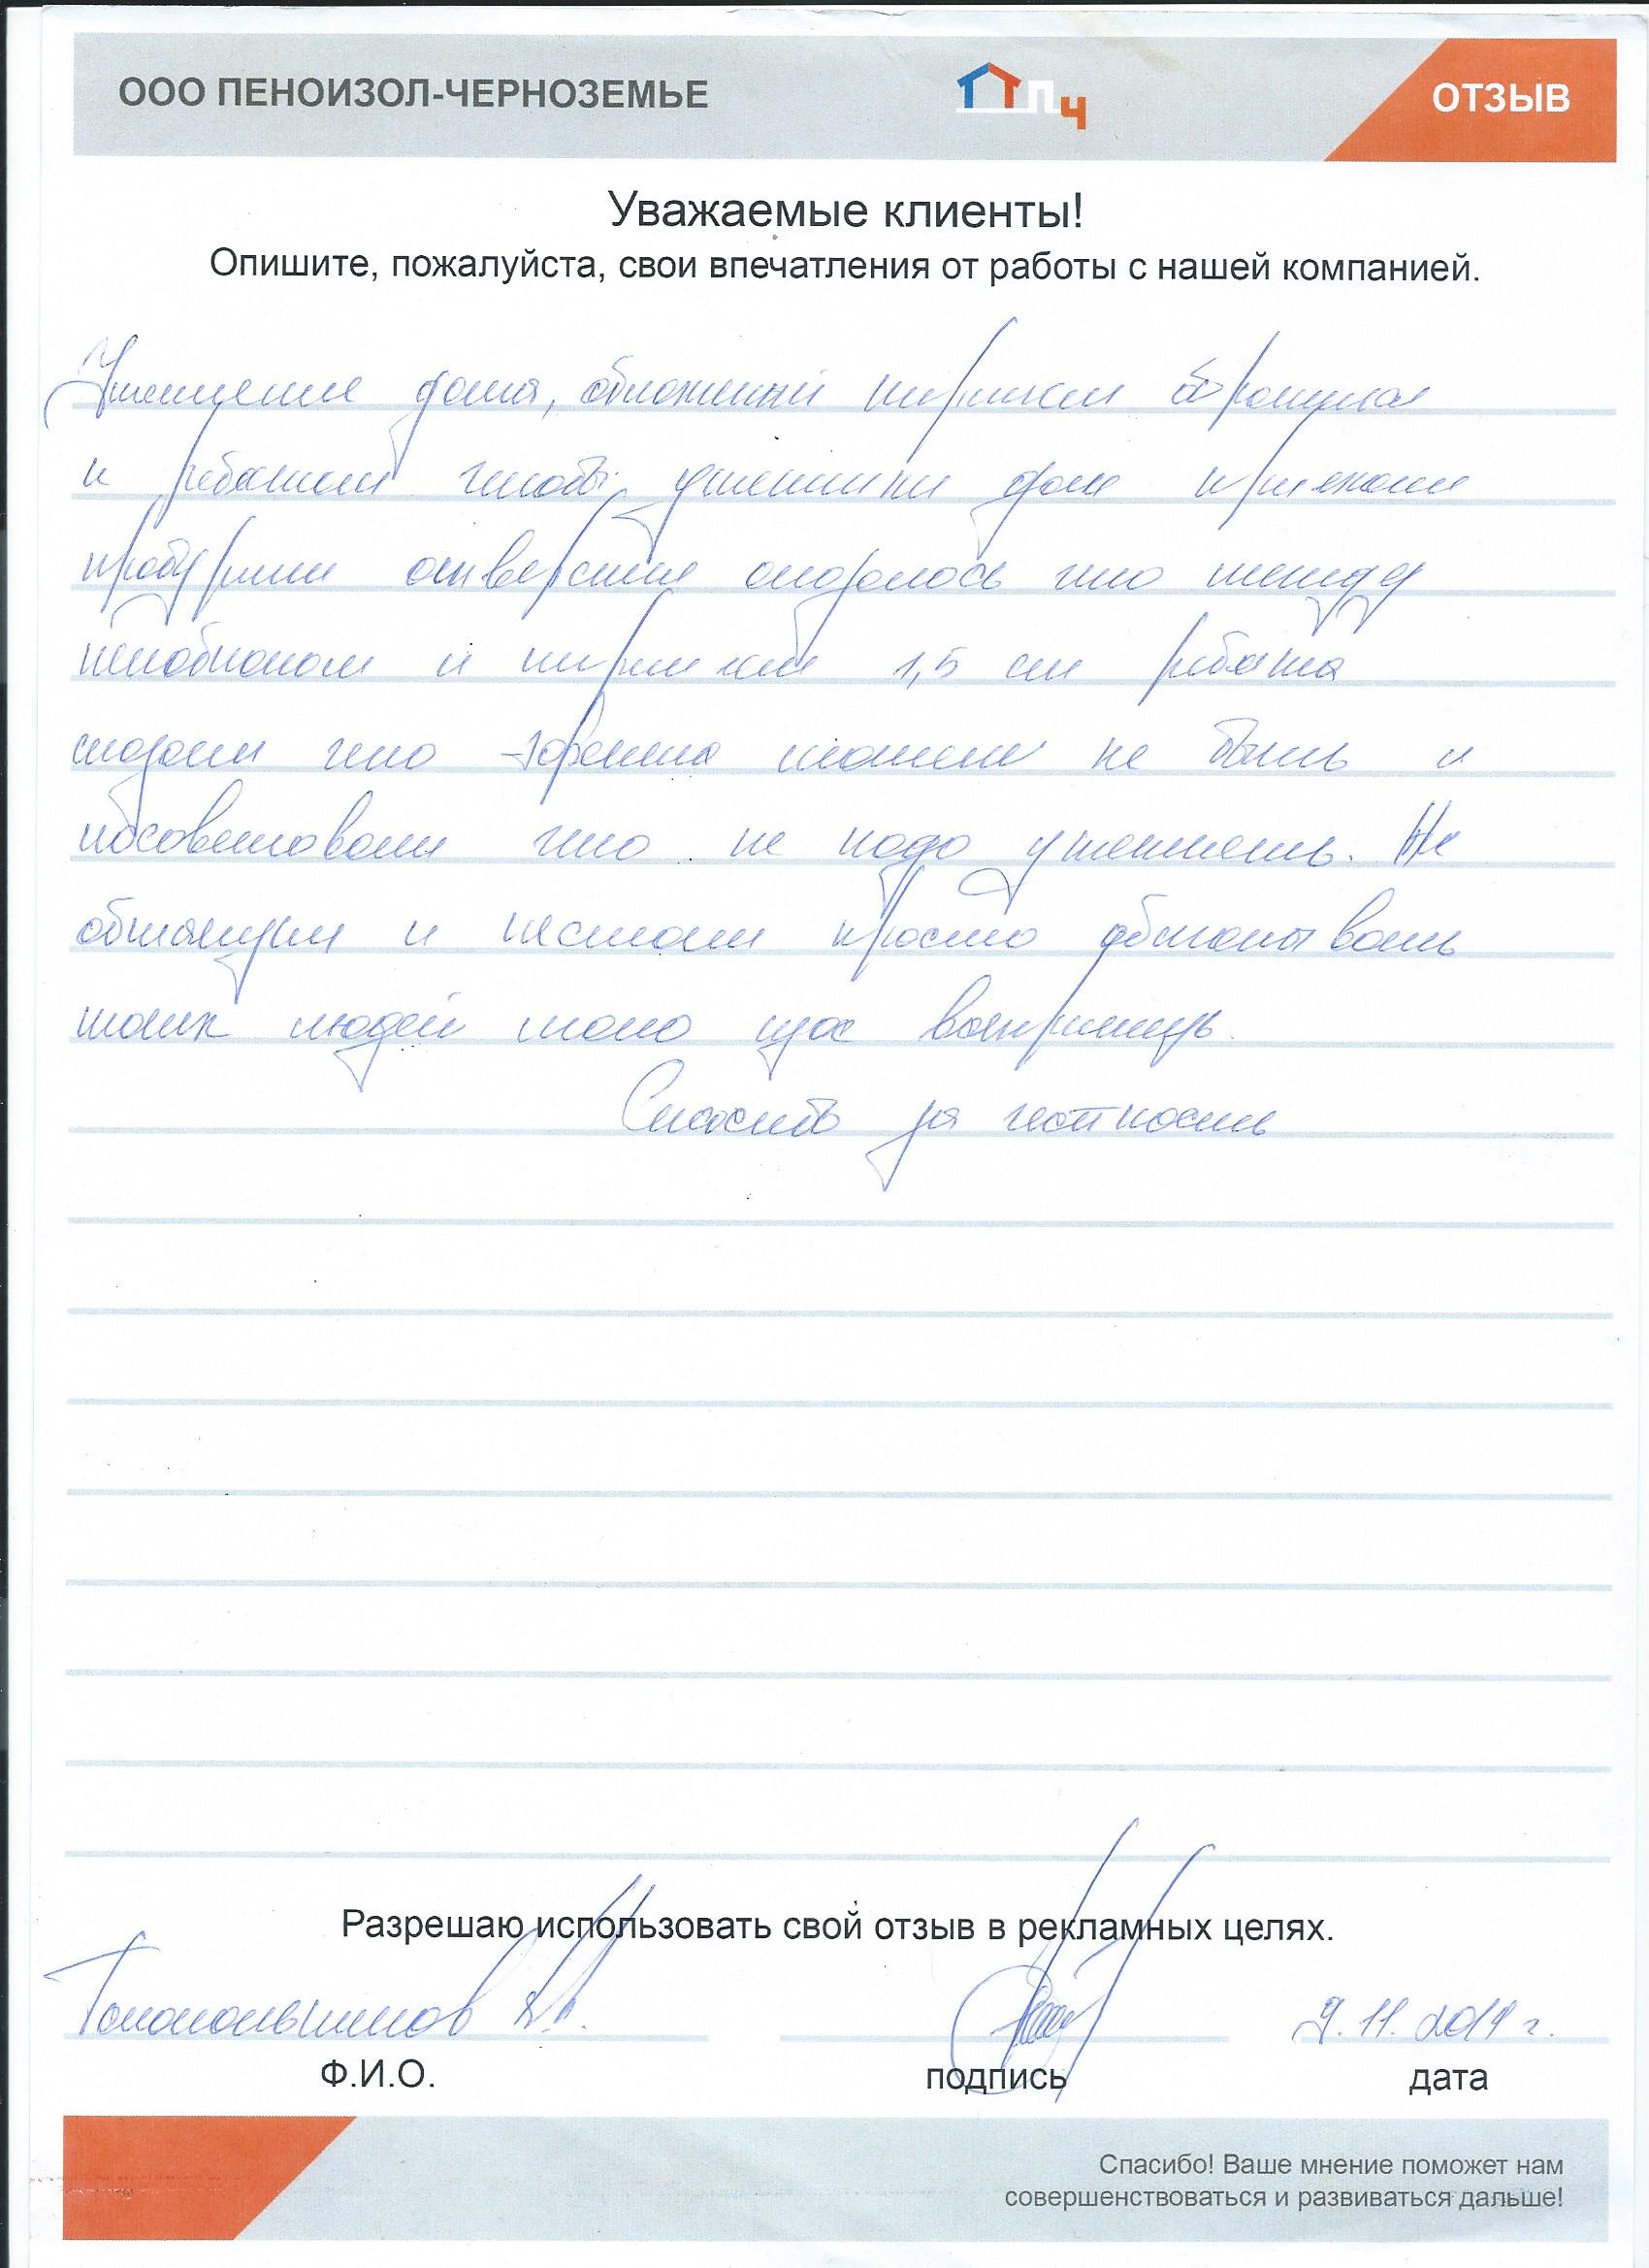 ООО ПЕНОИЗОЛ-ЧЕРНОЗЕМЬЕ
ПЧ
ОТЗЫВ
Уважаемые клиенты!
Опишите, пожалуйста, свои впечатления от работы с нашей компанией.
дома, обложенный кирпичом
и ребятам чтобы утеплили дом приехали
пробурили отверстие оказалось что между
пеноблоком и кирпичом 1,5 см ребята
сказали что эффекта может не быть и
посоветовали что не надо утеплять. Не
и не стали просто обманывать
таких людей мало щас встретишь.
Спасибо за честность
Разрешаю использовать свой отзыв в рекламных целях.
9.11.2019 г.
Ф.И.О.
подпись
дата
Спасибо! Ваше мнение поможет нам
совершенствоваться и развиваться дальше!